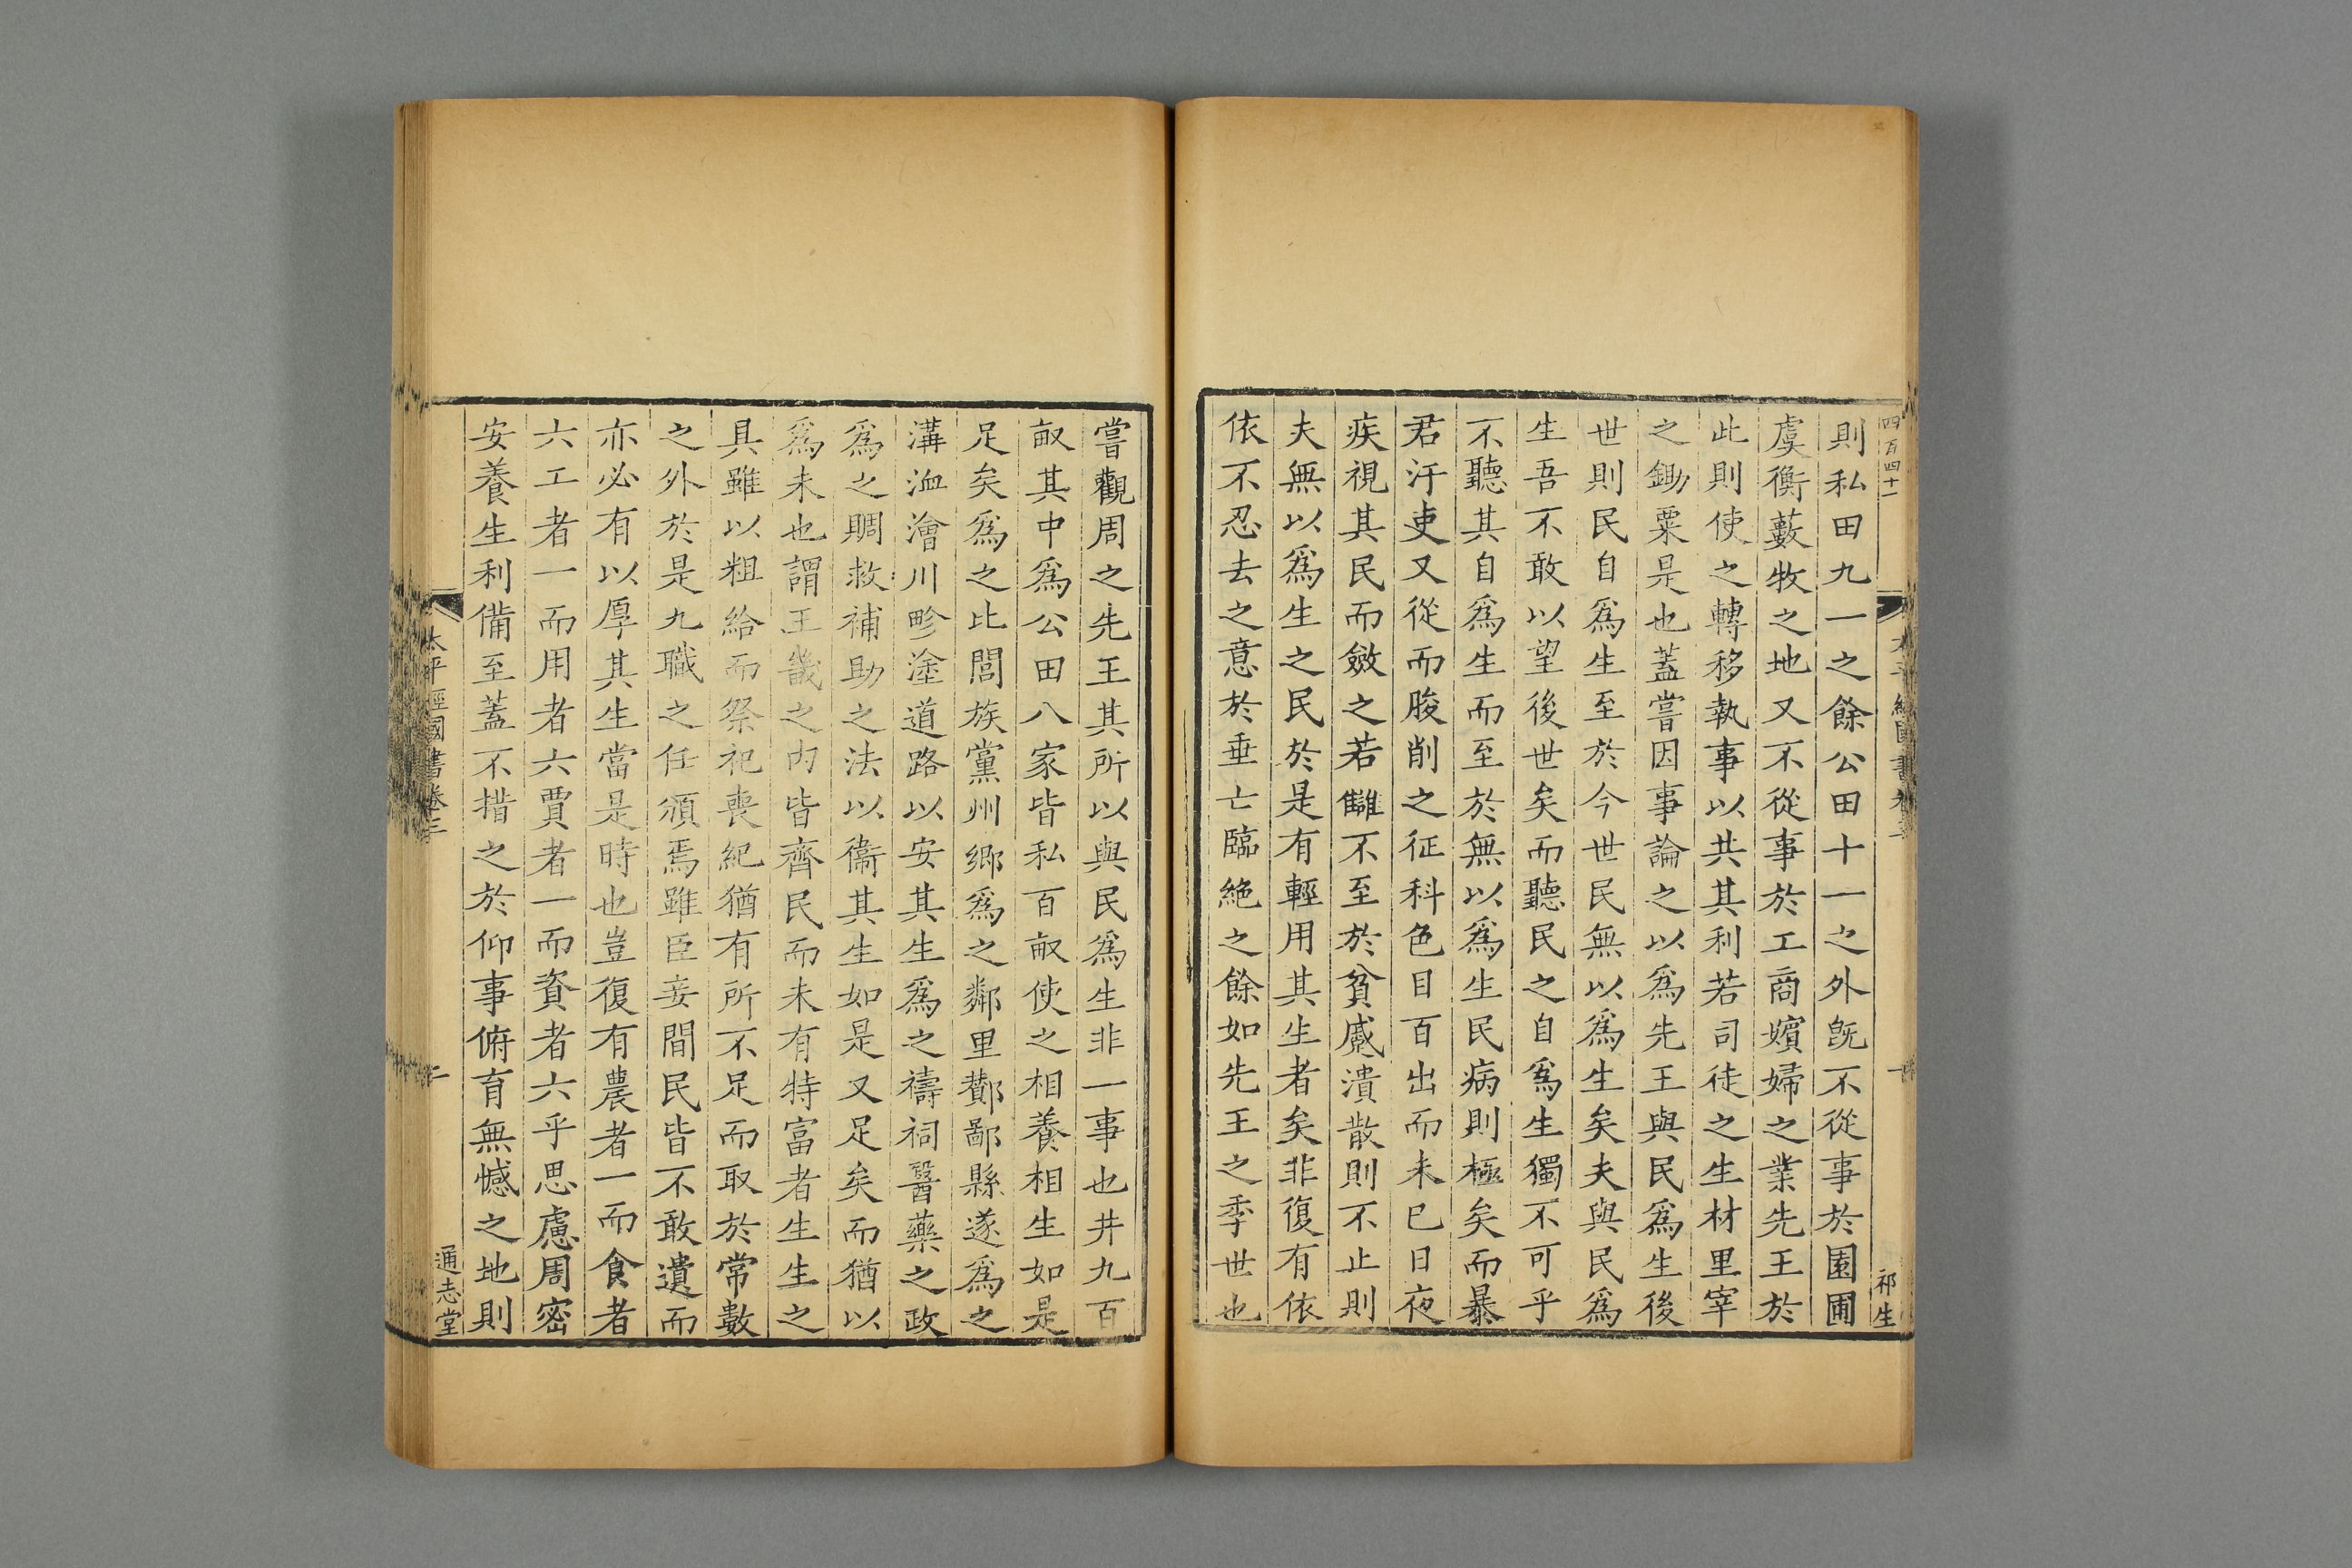 四百四十一
祁生
則私田九一之餘公田十一之外旣不從事於園圃
虞衡藪牧之地又不從事於工商嬪婦之業先王於
此則使之轉移執事以共其利若司徒之生材里宰
之鋤粟是也蓋嘗因事論之以爲先王與民爲生後
世則民自爲生至於今世民無以爲生矣夫與民爲
生吾不敢以望後世矣而聽民之自爲生獨不可乎
不聽其自爲生而至於無以爲生民病則極矣而暴
君汙吏又從而朘削之征科色目百出而未已日夜
疾視其民而斂之若讎不至於貧慼潰散則不止則
夫無以爲生之民於是有輕用其生者矣非復有依
依不忍去之意於垂亡臨絶之餘如先王之季世也
嘗觀周之先王其所以與民爲生非一事也井九百
畝其中爲公田八家皆私百畝使之相養相生如是
足矣爲之比閭族黨州鄉爲之鄰里酇鄙縣遂爲之
溝洫澮川畛塗道路以安其生爲之禱祠醫藥之政
爲之賙救補助之法以衞其生如是又足矣而猶以
爲未也謂王畿之內皆齊民而未有特富者生生之
具雖以粗給而祭祀喪紀猶有所不足而取於常數
之外於是九職之任頒焉雖臣妾間民皆不敢遺而
亦必有以厚其生當是時也豈復有農者一而食者
六工者一而用者六賈者一而資者六乎思慮周密
安養生利備至蓋不措之於仰事俯育無憾之地則
太平經國書卷三
通志堂